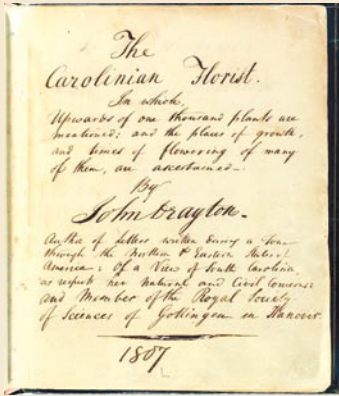 The
Carolinian Florist.
In which,
Upwards of one thousand plants are
mentioned; and the places of growth,
and times of flowering of many
of them, are ascertained—.
By
John Drayton—
Author of letters written during a tour
through the Northern & Eastern States of
America: Of a View of South Carolina,
as respects her natural and Civil Concerns:
and Member of the Royal Society
of Sciences of Gottingen in Hanover.
1807